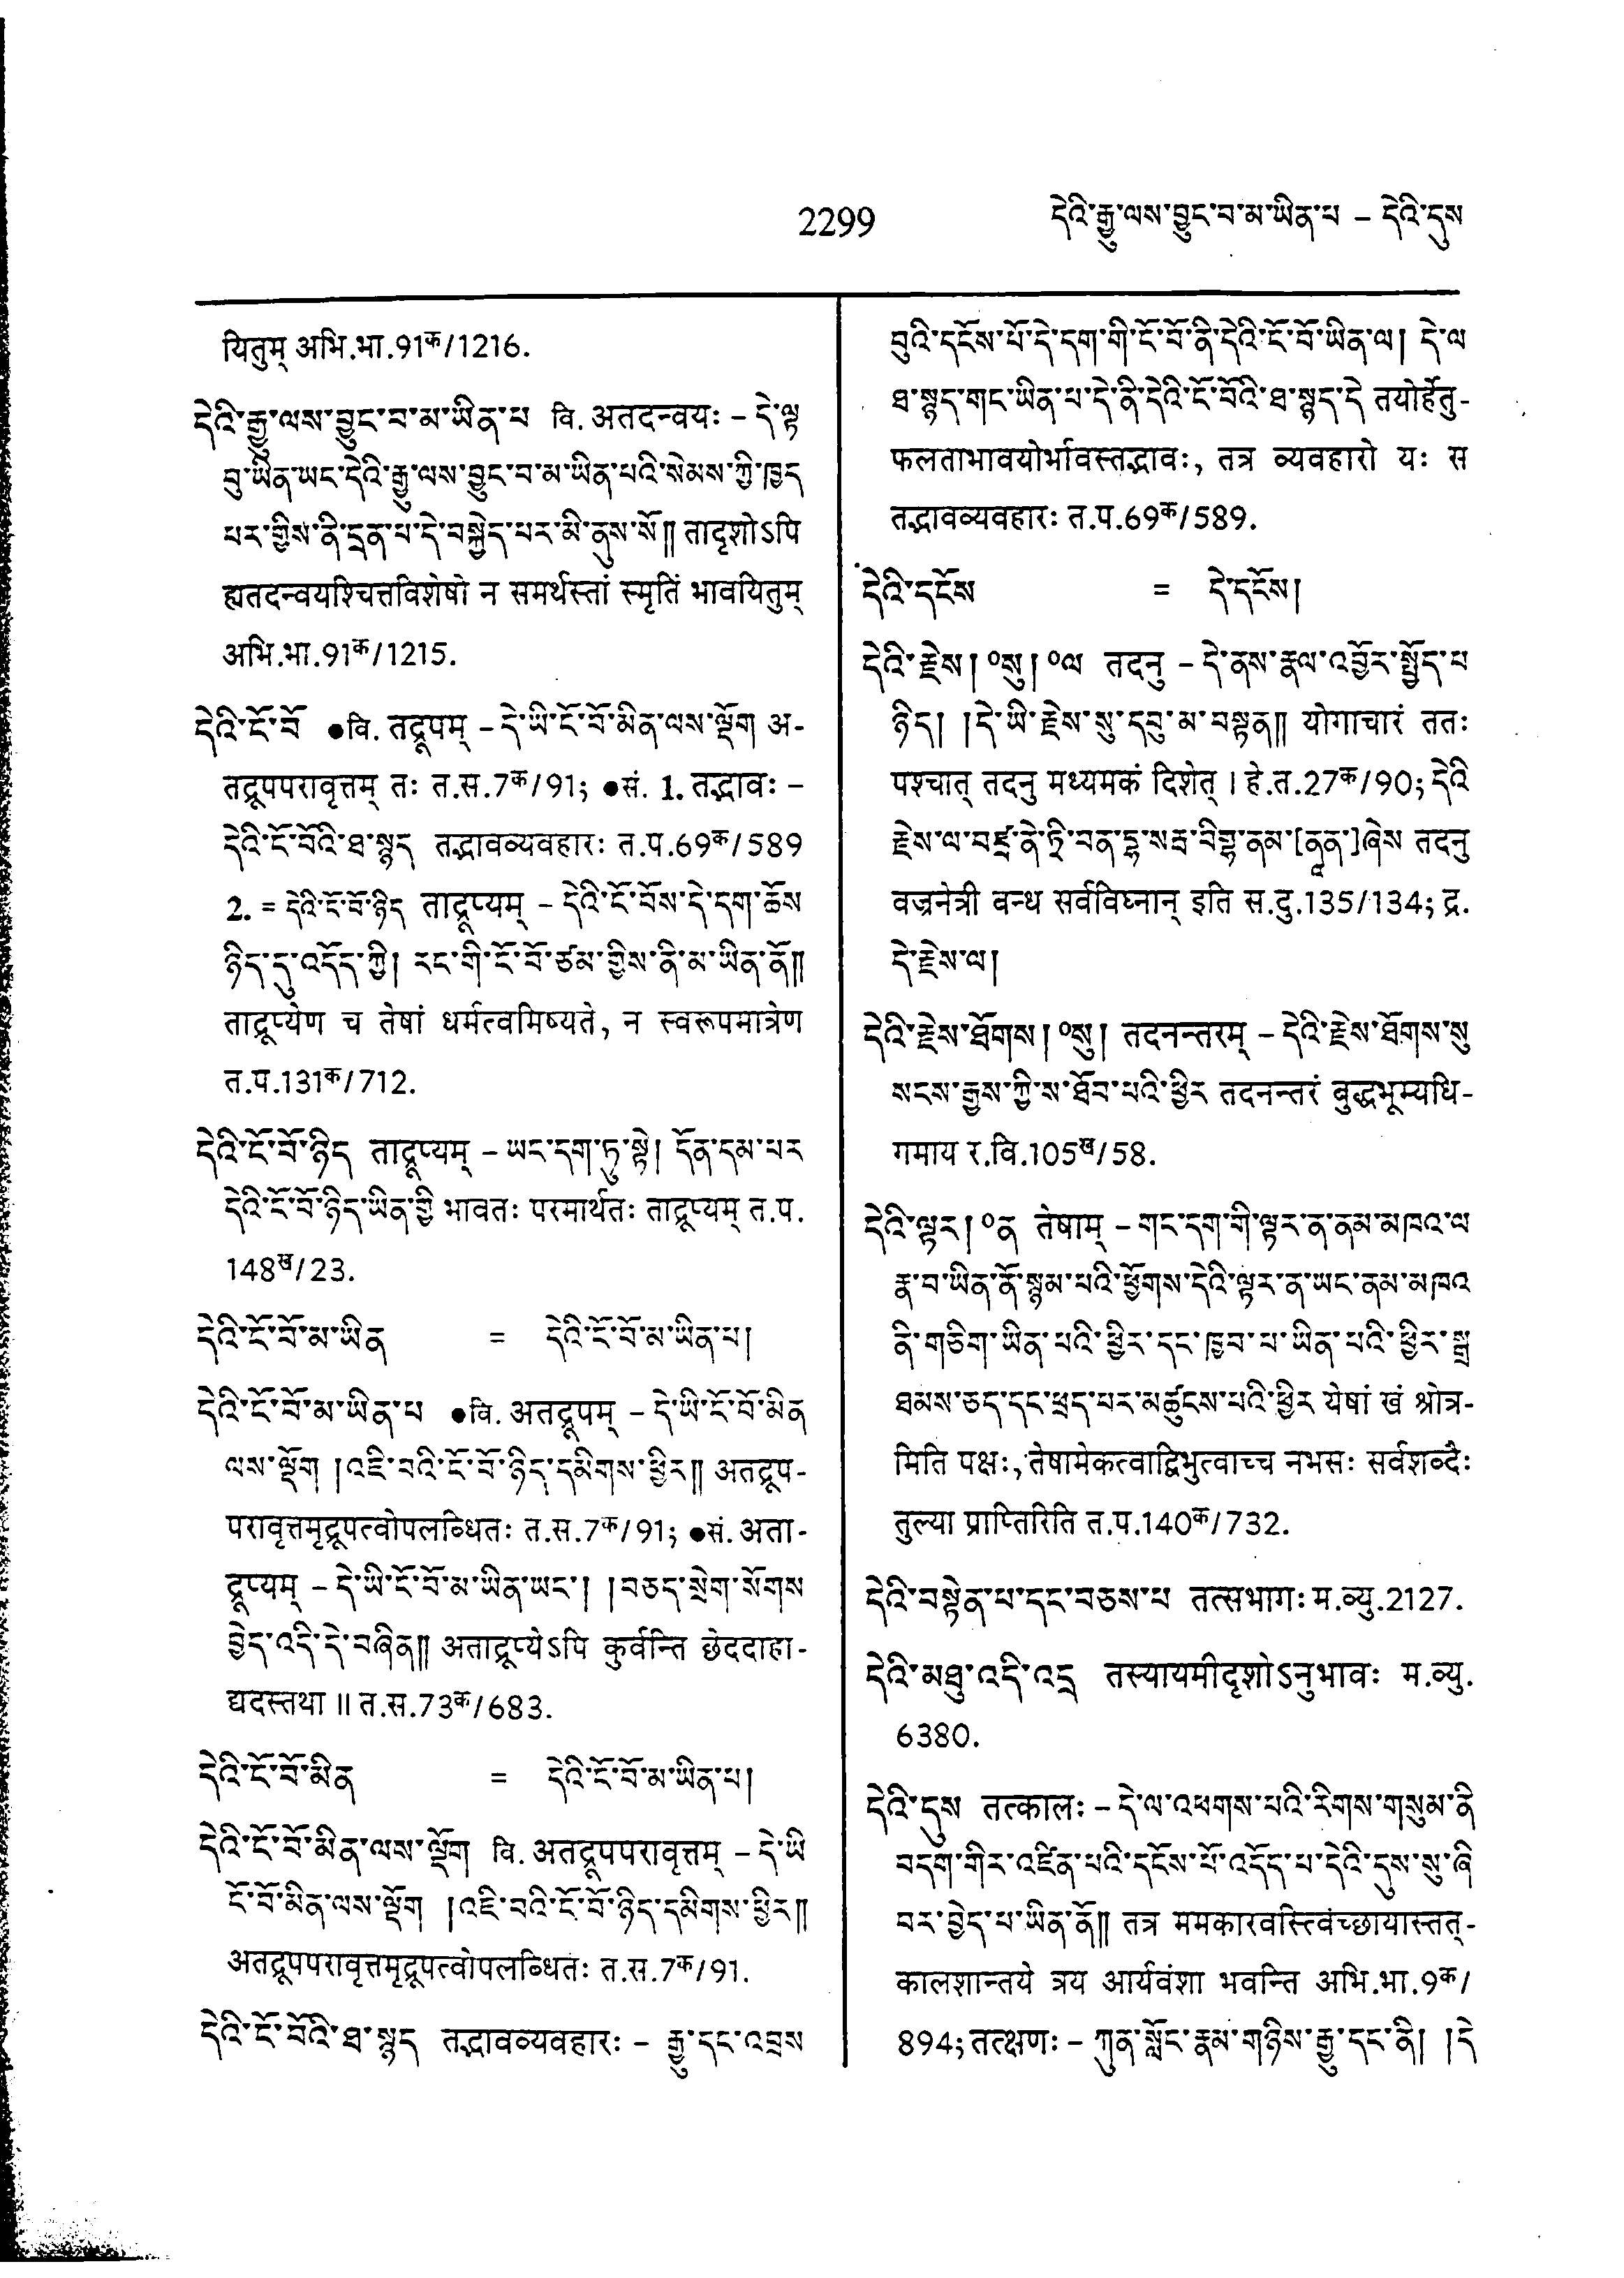 2299
དེའི་རྒྱུ་ལས་བྱུང་བ་མ་ཡིན་པ – དེའི་དུས
यितुम् अभि.भा.91क/1216.
དེའི་རྒྱུ་ལས་བྱུང་བ་མ་ཡིན་པ वि. अतदन्वयः – དེ་ལྟ
བུ་ཡིན་ཡང་དེའི་རྒྱུ་ལས་བྱུང་བ་མ་ཡིན་པའི་སེམས་ཀྱི་ཁྱད
པར་གྱིས་ནི་དྲན་པ་དེ་བསྐྱེད་པར་མི་ནུས་སོ།། तादृशोऽपि
ह्यतदन्वयश्चित्तविशेषो न समर्थस्तां स्मृतिं भावयितुम्
अभि.भा.91क/1215.
དེའི་ངོ་བོ ●वि. तद्रूपम् – དེ་ཡི་ངོ་བོ་མིན་ལས་ལྡོག अ-
तद्रूपपरावृत्तम् तः त.स.7क/91; ●सं. 1. तद्भावः –
དེའི་ངོ་བོའི་ཐ་སྙད तद्भावव्यवहारः त.प.69क/589
2. = དེའི་ངོ་བོ་ཉིད ताद्रूप्यम् – དེའི་ངོ་བོས་དེ་དག་ཆོས
ཉིད་དུ་འདོད་ཀྱི། རང་གི་ངོ་བོ་ཙམ་གྱིས་ནི་མ་ཡིན་ནོ།།
ताद्रूप्येण च तेषां धर्मत्वमिष्यते, न स्वरूपमात्रेण
त.प.131क/712.
དེའི་ངོ་བོ་ཉིད ताद्रूप्यम् – ཡང་དག་ཏུ་སྟེ། དོན་དམ་པར
དེའི་ངོ་བོ་ཉིད་ཡིན་གྱི भावतः परमार्थतः ताद्रूप्यम् त.प.
148ख/23.
དེའི་ངོ་བོ་མ་ཡིན = དེའི་ངོ་བོ་མ་ཡིན་པ།
དེའི་ངོ་བོ་མ་ཡིན་པ ●वि. अतद्रूपम् – དེ་ཡི་ངོ་བོ་མིན
ལས་ལྡོག །འཇི་བའི་ངོ་བོ་ཉིད་དམིགས་ཕྱིར།། अतद्रूप-
परावृत्तमृद्रूपत्वोपलब्धितः त.स.7क/91; ●सं. अता-
द्रूप्यम् – དེ་ཡི་ངོ་བོ་མ་ཡིན་ཡང་། །བཅད་སྲེག་སོགས
བྱེད་འདི་དེ་བཞིན།། अताद्रूप्येऽपि कुर्वन्ति छेददाहा-
द्यदस्तथा ॥ त.स.73क/683.
དེའི་ངོ་བོ་མིན = དེའི་ངོ་བོ་མ་ཡིན་པ།
དེའི་ངོ་བོ་མིན་ལས་ལྡོག वि. अतद्रूपपरावृत्तम् – དེ་ཡི
ངོ་བོ་མིན་ལས་ལྡོག །འཇི་བའི་ངོ་བོ་ཉིད་དམིགས་ཕྱིར།།
अतद्रूपपरावृत्तमृद्रूपत्वोपलब्धितः त.स.7क/91.
དེའི་ངོ་བོའི་ཐ་སྙད तद्भावव्यवहारः – རྒྱུ་དང་འབྲས
བུའི་དངོས་པོ་དེ་དག་གི་ངོ་བོ་ནི་དེའི་ངོ་བོ་ཡིན་ལ། དེ་ལ
ཐ་སྙད་གང་ཡིན་པ་དེ་ནི་དེའི་ངོ་བོའི་ཐ་སྙད་དེ तयोर्हेतु-
फलताभावयोर्भावस्तद्भावः, तत्र व्यवहारो यः स
तद्भावव्यवहारः त.प.69क/589.
དེའི་དངོས = དེ་དངོས།
དེའི་རྗེས། ༠སུ། ༠ལ तदनु – དེ་ནས་རྣལ་འབྱོར་སྤྱོད་པ
ཉིད། །དེ་ཡི་རྗེས་སུ་དབུ་མ་བསྟན།། योगाचारं ततः
पश्चात् तदनु मध्यमकं दिशेत् । हे.त.27क/90; དེའི
རྗེས་ལ་བཛྲ་ནེ་ཏྲི་བན་དྷ་སརྦ་བིགྷ་ནམ་[ནཱན་]ཞེས तदनु
वज्रनेत्री बन्ध सर्वविघ्नान् इति स.दु.135/134; द्र.
དེ་རྗེས་ལ།
དེའི་རྗེས་ཐོགས། ༠སུ། तदनन्तरम् – དེའི་རྗེས་ཐོགས་སུ
སངས་རྒྱས་ཀྱི་ས་ཐོབ་པའི་ཕྱིར तदनन्तरं बुद्धभूम्यधि-
गमाय र.वि.105ख/58.
དེའི་ལྟར། ༠ན तेषाम् – གང་དག་གི་ལྟར་ན་ནམ་མཁའ་ལ
རྣ་བ་ཡིན་ནོ་སྙམ་པའི་ཕྱོགས་དེའི་ལྟར་ན་ཡང་ནམ་མཁའ
ནི་གཅིག་ཡིན་པའི་ཕྱིར་དང་ཁྱབ་པ་ཡིན་པའི་ཕྱིར་སྒྲ
ཐམས་ཅད་དང་ཕྲད་པར་མཚུངས་པའི་ཕྱིར येषां खं श्रोत्र-
मिति पक्षः, तेषामेकत्वाद्विभुत्वाच्च नभसः सर्वशब्दैः
तुल्या प्राप्तिरिति त.प.140क/732.
དེའི་བསྟེན་པ་དང་བཅས་པ तत्सभागः म.व्यु.2127.
དེའི་མཐུ་འདི་འདྲ तस्यायमीदृशोऽनुभावः म.व्यु.
6380.
དེའི་དུས तत्कालः – དེ་ལ་འཕགས་པའི་རིགས་གསུམ་ནི
བདག་གིར་འཛིན་པའི་དངོས་པོ་འདོད་པ་དེའི་དུས་སུ་ཞི
བར་བྱེད་པ་ཡིན་ནོ།། तत्र ममकारवस्त्विच्छायास्तत्-
कालशान्तये त्रय आर्यवंशा भवन्ति अभि.भा.9क/
894; तत्क्षणः – ཀུན་སློང་རྣམ་གཉིས་རྒྱུ་དང་ནི། །དེ